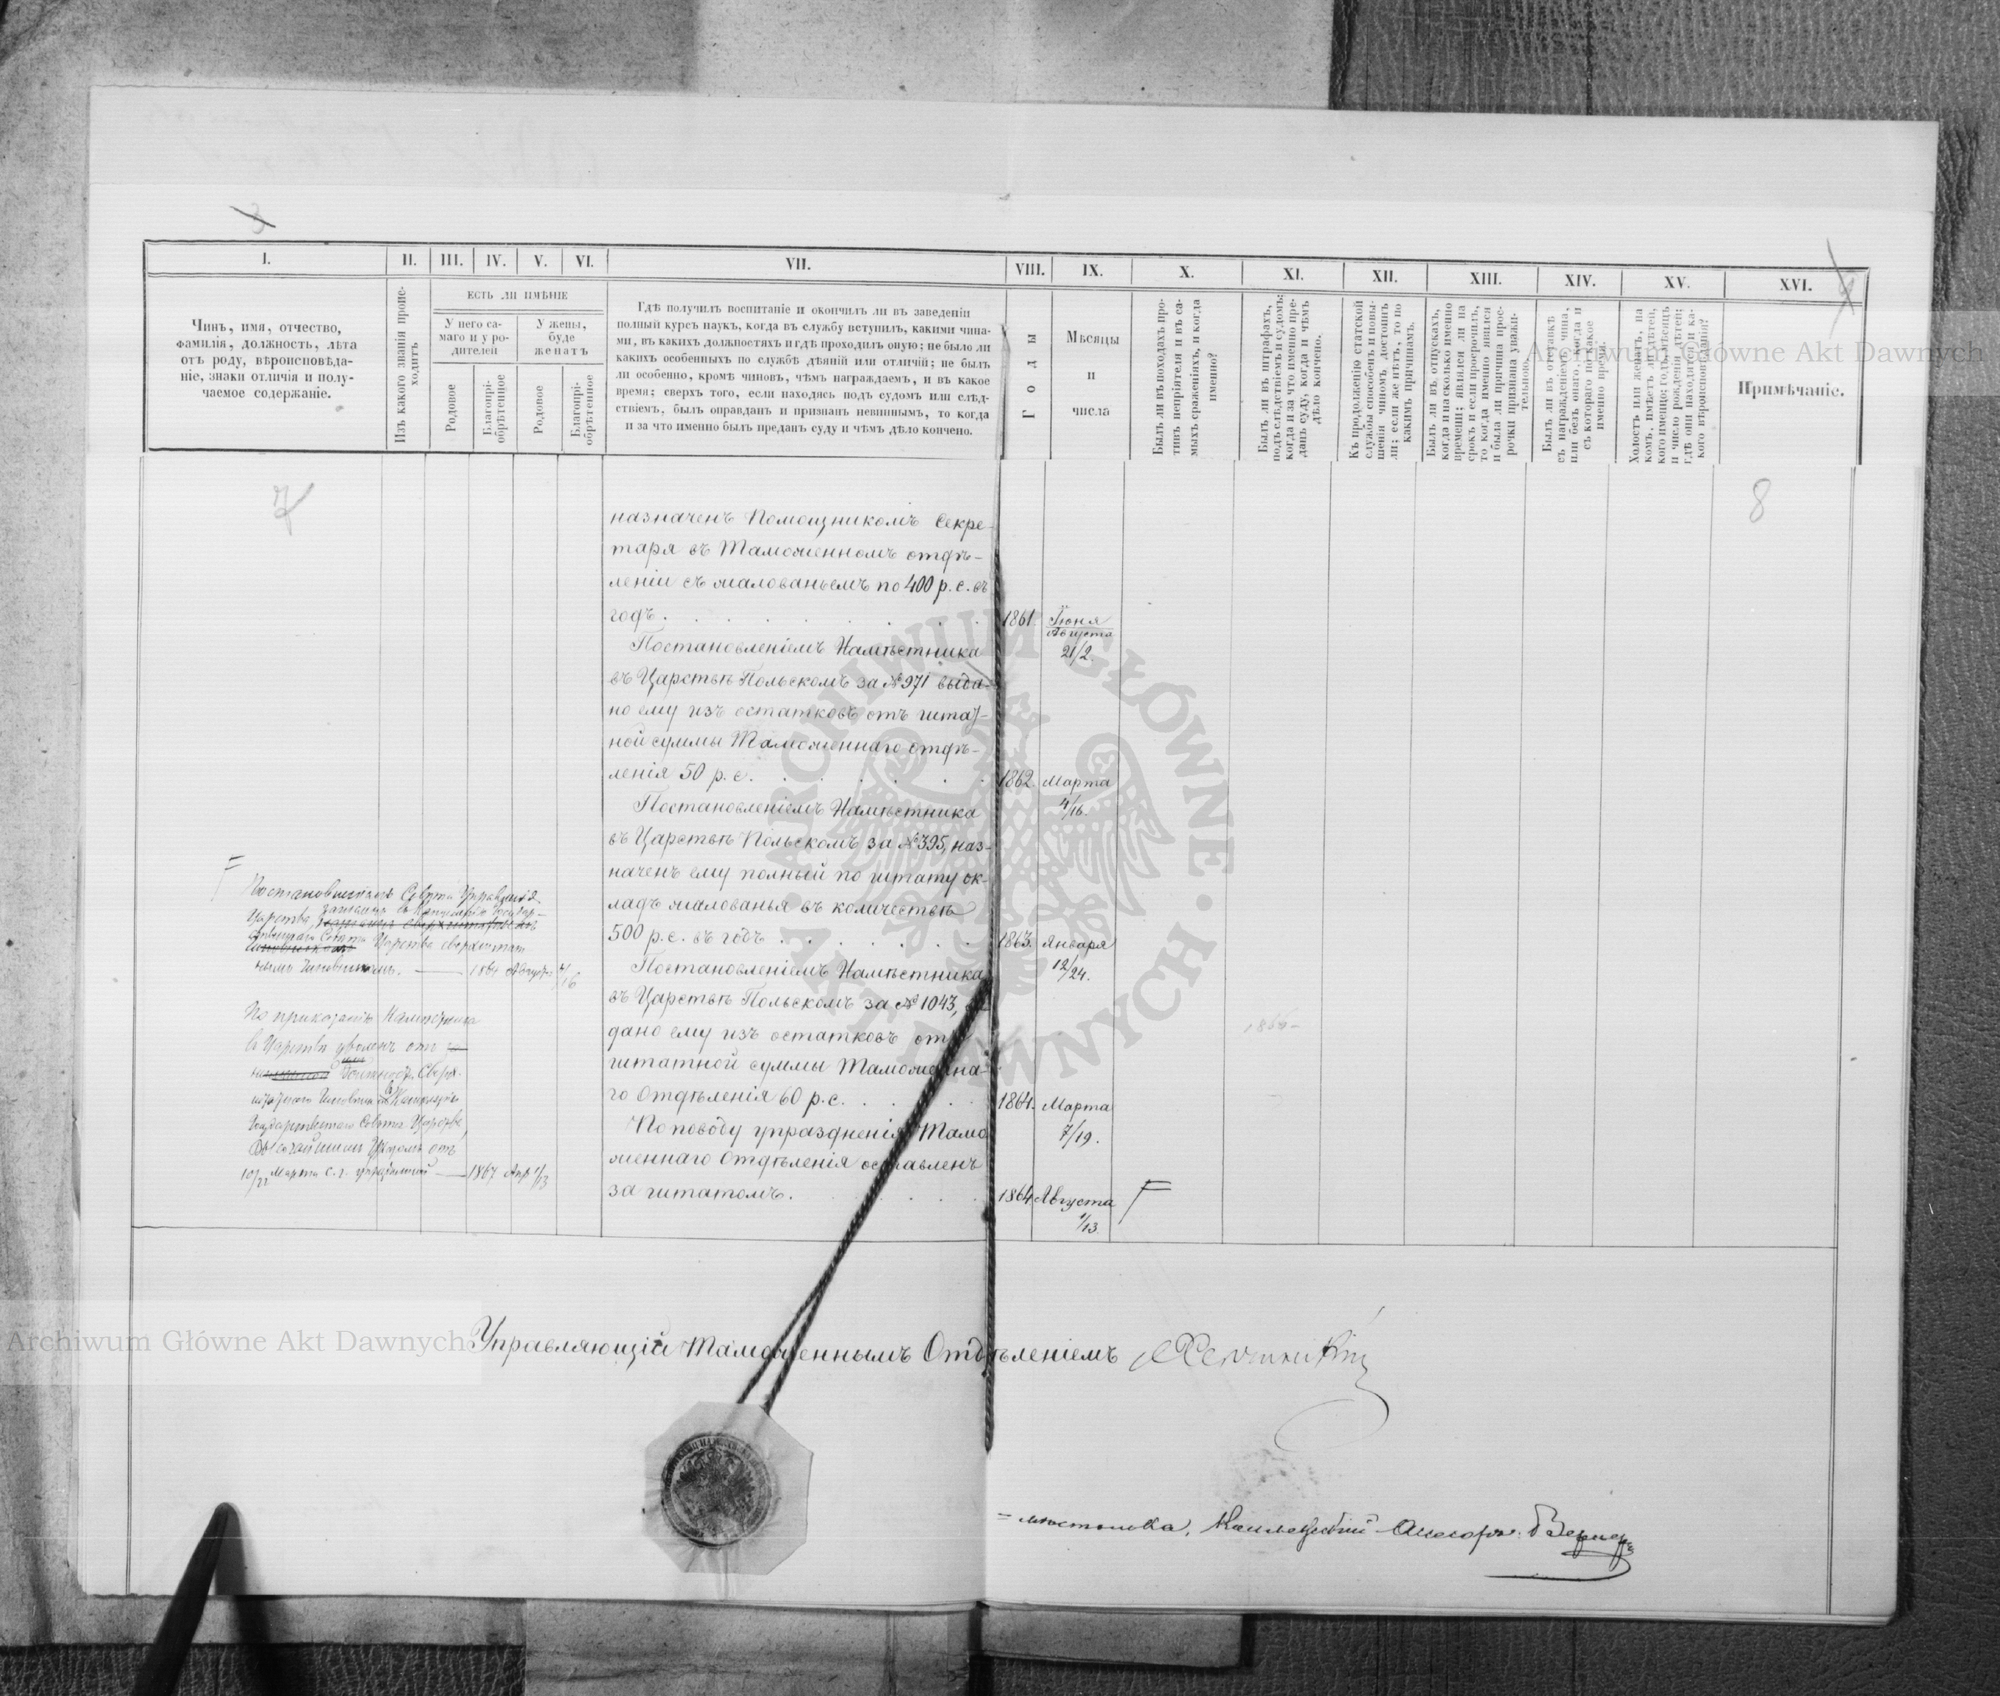 8
I. II. III. IV. V. VI. VII. VIII. IX. X. XI. XII. XIII. XIV. XV. XVI.
Чинъ, имя, отчество,
фамилія, должность, лѣта
отъ роду, вѣроисповѣда-
ніе, знаки отличія и полу-
чаемое содержаніе.
Изъ какого званія проис-
ходитъ
ЕСТЬ ЛИ ИМѢНІЕ
У него са-
маго и у ро-
дителей
У жены,
буде
женатъ
Родовое
Благопрі-
обрѣтенное
Родовое
Благопрі-
обрѣтенное
Гдѣ получилъ воспитаніе и окончилъ ли въ заведеніи
полный курсъ наукъ, когда въ службу вступилъ, какими чина-
ми, въ какихъ должностяхъ и гдѣ проходилъ оную; не было ли
какихъ особенныхъ по службѣ дѣяній или отличій; не былъ
ли особенно, кромѣ чиновъ, чѣмъ награждаемъ, и въ какое
время; сверхъ того, если находясь подъ судомъ или слѣд-
ствіемъ, былъ оправданъ и признанъ невиннымъ, то когда
и за что именно былъ преданъ суду и чѣмъ дѣло кончено.
Годы
Мѣсяцы
и
числа
Былъ ли въ походахъ про-
тивъ непріятеля и въ са-
мыхъ сраженіяхъ, и когда
именно?
Былъ ли въ штрафахъ,
подъ слѣдствіемъ и судомъ;
когда и за что именно пре-
данъ суду, когда и чѣмъ
дѣло кончено.
Къ продолженію статской
службы способенъ и повы-
шенія чиномъ достоинъ
ли; если же нѣтъ, то по
какимъ причинамъ.
Былъ ли въ отпускахъ,
когда и насколько именно
времени; являлся ли на
срокъ и если просрочилъ,
то когда именно явился
и была ли причина прос-
рочки признана уважи-
тельною.
Былъ ли въ отставкѣ
съ награжденіемъ чина,
или безъ онаго, когда и
съ котораго по какое
именно время.
Холостъ или женатъ, на
комъ, имѣетъ ли дѣтей,
кого именно; годъ, мѣсяцъ
и число рожденія дѣтей;
гдѣ они находятся и ка-
кого вѣроисповѣданія?
Примѣчаніе.
7
8
назначенъ Помощникомъ Секре-
таря въ Таможенномъ отдѣ-
леніи съ жалованьемъ по 400 р. с. въ
годъ. 1861. Іюня
Августа
21/2.
Постановленіемъ Намѣстника
въ Царствѣ Польскомъ за № 971 выда-
но ему изъ остатковъ отъ штат-
ной суммы Таможеннаго отдѣ-
ленія 50 р. с. 1862 Марта
4/16.
Постановленіемъ Намѣстника
въ Царствѣ Польскомъ за № 395, наз-
наченъ ему полный по штату ок-
ладъ жалованья въ количествѣ
500 р. с. въ годъ 1863. Января
12/24.
Постановленіемъ Намѣстника
въ Царствѣ Польскомъ за № 1043, вы-
дано ему изъ остатковъ отъ
штатной суммы Таможенна-
го Отдѣленія 60 р. с. 1864. Марта
7/19.
По поводу упраздненія Тамо-
женнаго Отдѣленія оставленъ
за штатомъ. 1864 Августа
1/13.
Постановленіемъ Совѣта Управленія
Царства,
Царства сверхштат
нымъ Чиновникомъ. 1864 Августа 4/16
По приказанію Намѣстника
въ Царствѣ уволенъ отъ
Сверх-
штатнаго Чиновника Канцеляріи
Государственнаго Совѣта Царства,
Высочайшимъ Указомъ отъ
10/22 Марта с. г. 1867 Апр 1/13
1864
Управляющій Таможеннымъ Отдѣленіемъ
Коллежскій Ассесоръ
Archiwum Główne Akt Dawnych
Archiwum Główne Akt Dawnych
ARCHIWUM GŁÓWNE AKT DAWNYCH